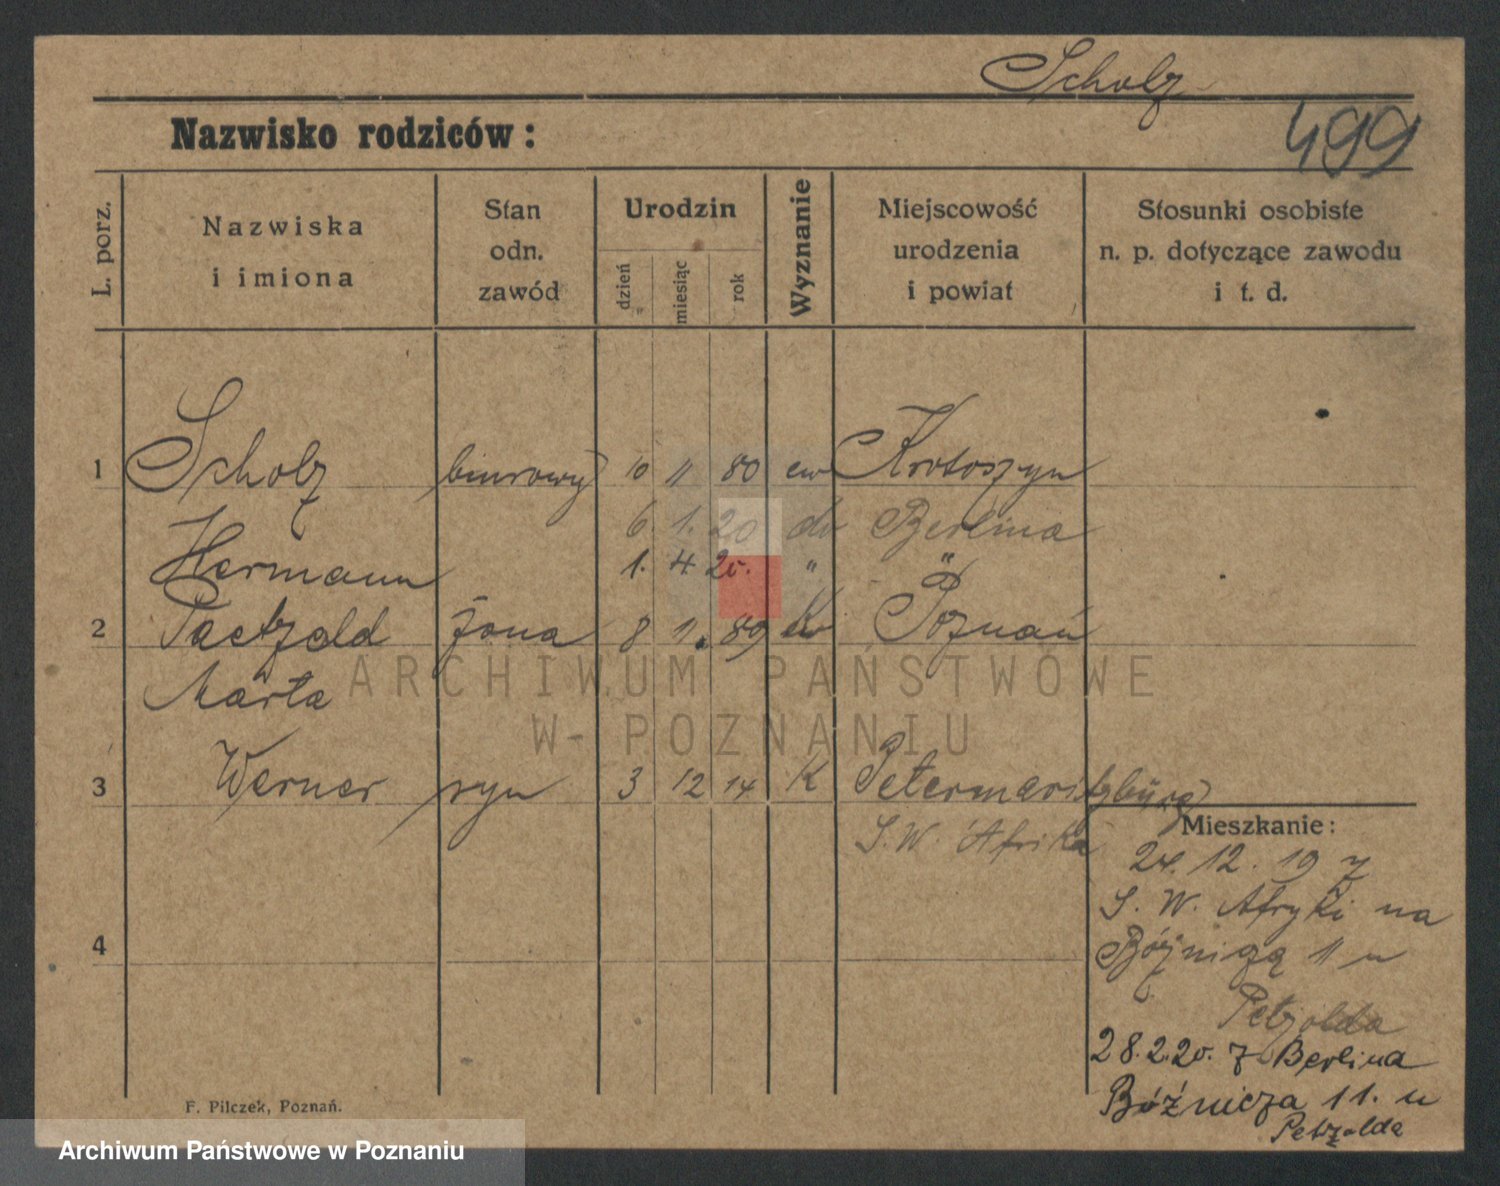 Scholz
499
Nazwisko rodziców:
L. porz.
Nazwiska
i imiona
Stan
odn.
zawód
Urodzin
dzień
miesiąc
rok
Wyznanie
Miejscowość
urodzenia
i powiat
Stosunki osobiste
n. p. dotyczące zawodu
i t. d.
1 Scholz biurowy 10 11 80 ew Krotoszyn
6. 1. 20 do Berlina
Hermann 1. 4. 20. " "
2 Paetzold żona 8 11. 89 Poznań
Marta
3 Werner syn 3 12 14 K Petermaritzbürg
S. W. Afrika
Mieszkanie:
24. 12. 19 z
S. W. Afryki na
4
Bóźniczą 11 u
Petzolda
28.2.20. z Berlina
Bóźnicza 11. u
Petzolda
F. Pilczek, Poznań.
ARCHIWUM PAŃSTWOWE
W POZNANIU
Archiwum Państwowe w Poznaniu